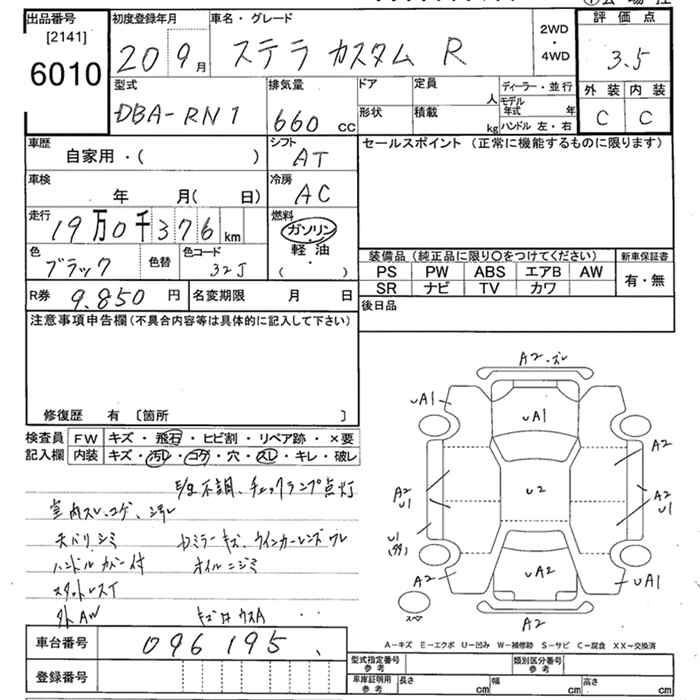 出品番号 [2141] 6010
初度登録年月 20 9月
車名・グレード ステラ カスタム R
2WD・4WD
評価点 3.5
外装 C 内装 C
型式 DBA-RN1
排気量 660 cc
ドア 形状
定員 人 積載 kg
ディーラー・並行
モデル年式 年
ハンドル 左・右
車歴 自家用・( )
シフト AT
セールスポイント (正常に機能するものに限ります)
車検 年 月( 日)
冷房 AC
走行 19万0千376 km
燃料 ガソリン・軽油・( )
色 ブラック 色替 色コード 32J
装備品 (純正品に限り○をつけてください) 新車保証書
PS PW ABS エアB AW 有・無
SR ナビ TV カワ
R券 9.850 円 名変期限 月 日
後日品
注意事項申告欄 (不具合内容等は具体的に記入して下さい)
修復歴 有 〔箇所 〕
検査員記入欄
FW キズ・飛石・ヒビ割・リペア跡・×要
内装 キズ・汚レ・コゲ・穴・スレ・キレ・破レ
E/g不調、チェックランプ点灯
室内スレ、コゲ、汚レ
天バリ、シミ ドミラーキズ、ウインカーレンズワレ
ハンドルカバー付 オイルニジミ
スタットレスT
外AW
A2・ズレ
uA1 uA1
A2
A2 u1 u2 A2 u1
u1
A2 uA2 uA1
スペア A2
車台番号 096195
登録番号
A－キズ E－エクボ U－凹み W－補修跡 S－サビ C－腐食 XX－交換済
型式指定番号 参考 類別区分番号 参考
車庫証明用 参考 長さ cm 幅 cm 高さ cm